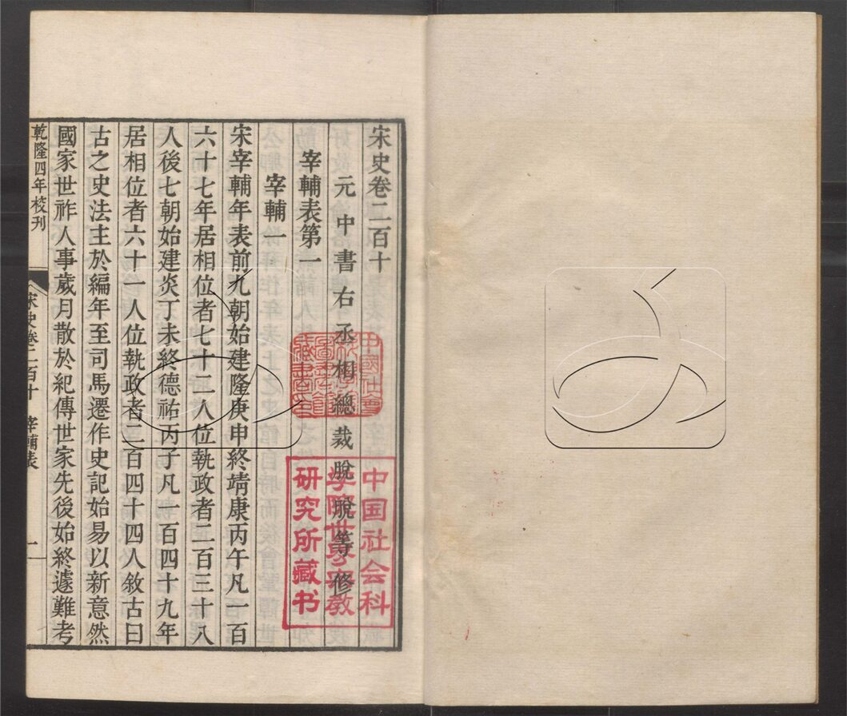 宋史卷二百十
元中書右丞相總裁脫脫等修
宰輔表第一
宰輔一
宋宰輔年表前九朝始建隆庚申終靖康丙午凡一百
六十七年居相位者七十二人位執政者二百三十八
人後七朝始建炎丁未終德祐丙子凡一百四十九年
居相位者六十一人位執政者二百四十四人敘古曰
古之史法主於編年至司馬遷作史記始易以新意然
國家世祚人事歲月散於紀傳世家先後始終遽難考
乾隆四年校刊
宋史卷二百十
宰輔表
一
中国社会科
学院世界宗教
研究所藏书